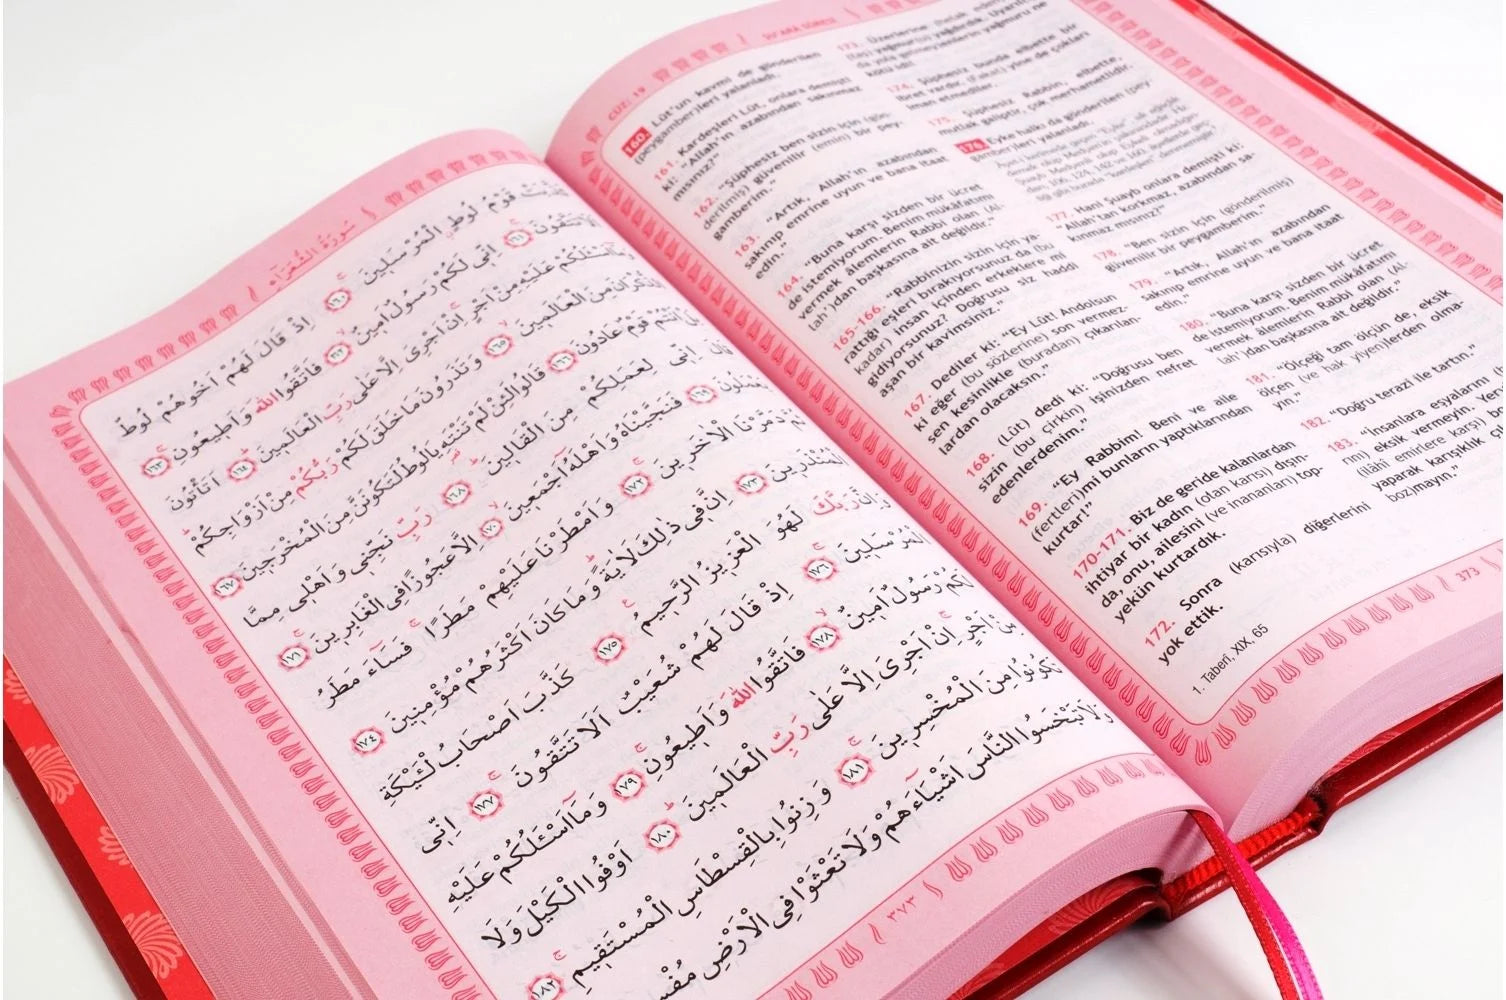 سُورَةُ الشُّعَرَاءِ
كَذَّبَتْ قَوْمُ لُوطٍ الْمُرْسَلِينَ ١٦٠ اِذْ قَالَ لَهُمْ اَخُوهُمْ لُوطٌ
اَلَا تَتَّقُونَ ١٦١ اِنِّى لَكُمْ رَسُولٌ اَمِينٌ ١٦٢ فَاتَّقُوا اللّٰهَ وَاَطِيعُونِ ١٦٣
وَمَا اَسْئَلُكُمْ عَلَيْهِ مِنْ اَجْرٍ اِنْ اَجْرِىَ اِلَّا عَلٰى رَبِّ الْعَالَمِينَ ١٦٤ اَتَأْتُونَ
الذُّكْرَانَ مِنَ الْعَالَمِينَ ١٦٥ وَتَذَرُونَ مَا خَلَقَ لَكُمْ رَبُّكُمْ مِنْ اَزْوَاجِكُمْ
بَلْ اَنْتُمْ قَوْمٌ عَادُونَ ١٦٦ قَالُوا لَئِنْ لَمْ تَنْتَهِ يَا لُوطُ لَتَكُونَنَّ مِنَ الْمُخْرَجِينَ ١٦٧
قَالَ اِنِّى لِعَمَلِكُمْ مِنَ الْقَالِينَ ١٦٨ رَبِّ نَجِّنِى وَاَهْلِى مِمَّا
يَعْمَلُونَ ١٦٩ فَنَجَّيْنَاهُ وَاَهْلَهُ اَجْمَعِينَ ١٧٠ اِلَّا عَجُوزًا فِى الْغَابِرِينَ ١٧١
ثُمَّ دَمَّرْنَا الْاٰخَرِينَ ١٧٢ وَاَمْطَرْنَا عَلَيْهِمْ مَطَرًا فَسَاءَ مَطَرُ
الْمُنْذَرِينَ ١٧٣ اِنَّ فِى ذٰلِكَ لَاٰيَةً وَمَا كَانَ اَكْثَرُهُمْ مُؤْمِنِينَ ١٧٤
وَاِنَّ رَبَّكَ لَهُوَ الْعَزِيزُ الرَّحِيمُ ١٧٥ كَذَّبَ اَصْحَابُ لْئَيْكَةِ
الْمُرْسَلِينَ ١٧٦ اِذْ قَالَ لَهُمْ شُعَيْبٌ اَلَا تَتَّقُونَ ١٧٧ اِنِّى
لَكُمْ رَسُولٌ اَمِينٌ ١٧٨ فَاتَّقُوا اللّٰهَ وَاَطِيعُونِ ١٧٩ وَمَا اَسْئَلُكُمْ عَلَيْهِ
مِنْ اَجْرٍ اِنْ اَجْرِىَ اِلَّا عَلٰى رَبِّ الْعَالَمِينَ ١٨٠ اَوْفُوا الْكَيْلَ وَلَا
تَكُونُوا مِنَ الْمُخْسِرِينَ ١٨١ وَزِنُوا بِالْقِسْطَاسِ الْمُسْتَقِيمِ ١٨٢
وَلَا تَبْخَسُوا النَّاسَ اَشْيَاءَهُمْ وَلَا تَعْثَوْا فِى الْاَرْضِ
٣٧٣
CÜZ: 19
ŞU'ARA SÛRESİ
160. Lût'un kavmi de gönderilen
(peygamber)leri yalanladı.
161. Kardeşleri Lût, onlara demişti
ki: "Allah'ın azabından sakınmaz
mısınız?"
162. "Şüphesiz ben sizin için (gön-
derilmiş) güvenilir (emin) bir pey-
gamberim."
163. "Artık, Allah'ın azabından
sakınıp emrine uyun ve bana itaat
edin."
164. "Buna karşı sizden bir ücret
de istemiyorum. Benim mükâfatımı
vermek âlemlerin Rabbi olan (Al-
lah')dan başkasına ait değildir."
165-166. "Rabbinizin sizin için ya-
rattığı eşleri bırakıyorsunuz da (bu
kadar) insan içinden erkeklere mi
gidiyorsunuz? Doğrusu siz haddi
aşan bir kavimsiniz."
167. Dediler ki: "Ey Lût! Andolsun
ki eğer (bu sözlerine) son vermez-
sen kesinlikle (buradan) çıkarılan-
lardan olacaksın."
168. (Lût) dedi ki: "Doğrusu ben
sizin (bu çirkin) işinizden nefret
edenlerdenim."
169. "Ey Rabbim! Beni ve aile
(fertleri)mi bunların yaptıklarından
kurtar!"
170-171. Biz de geride kalanlardan
ihtiyar bir kadın (olan karısı) dışın-
da, onu, ailesini (ve inananları) top-
yekün kurtardık.
172. Sonra (karısıyla) diğerlerini
yok ettik.
173. Üzerlerine (helak eden)
(taş) yağmur(u) yağdırdık. Uyarılıp
da yola gelmeyenlerin yağmuru ne
kötü idi!
174. Şüphesiz bunda elbette bir
ibret vardır. (Fakat) yine de çokları
iman etmediler.
175. Şüphesiz Rabbin, elbette,
mutlak galiptir, çok merhametlidir.
176. Eyke halkı da gönderilen (pey-
gamber)leri yalanladı.
177. Hani Şuayb onlara demişti ki:
"Allah'tan korkmaz, azabından sa-
kınmaz mısınız?"
178. "Ben sizin için (gönderilmiş)
güvenilir bir peygamberim."
179. "Artık, Allah'ın azabından
sakınıp emrine uyun ve bana itaat
edin."
180. "Buna karşı sizden bir ücret
de istemiyorum. Benim mükâfatımı
vermek âlemlerin Rabbi olan (Al-
lah')dan başkasına ait değildir."
181. "Ölçeği tam ölçün de, eksik
ölçen (ve hak yiyen)lerden olma-
yın."
182. "Doğru terazi ile tartın."
183. "İnsanlara eşyalarını
eksik vermeyin.
(ilâhi emirlere karşı)
yaparak karışıklık
boz)mayın."
1. Taberî, XIX, 65
373